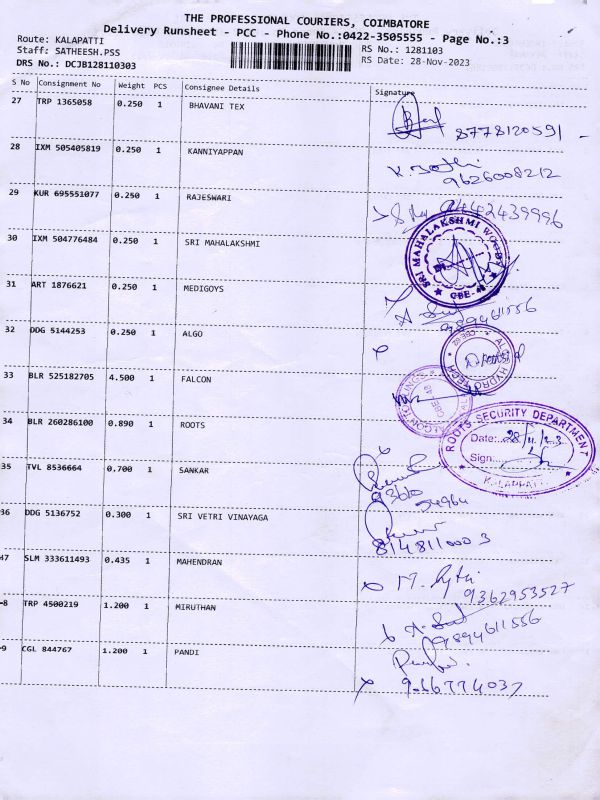 THE PROFESSIONAL COURIERS, COIMBATORE
Delivery Runsheet - PCC - Phone No.:0422-3505555 - Page No.:3
Route: KALAPATTI
Staff: SATHEESH.PSS
RS No.: 1281103
DRS No.: DCJB128110303
RS Date: 28-Nov-2023
S No Consignment No Weight PCS Consignee Details Signature
27 TRP 1365058 0.250 1 BHAVANI TEX
8778120591
28 IXM 505405819 0.250 1 KANNIYAPPAN
9626008212
29 KUR 695551077 0.250 1 RAJESWARI
9442439996
30 IXM 504776484 0.250 1 SRI MAHALAKSHMI
SRI MAHALAKSHMI
CBE-
31 ART 1876621 0.250 1 MEDIGOYS
9894611556
32 DDG 5144253 0.250 1 ALGO
HYDRO TECH
33 BLR 525182705 4.500 1 FALCON
34 BLR 260286100 0.890 1 ROOTS
ROOTS SECURITY DEPARTMENT
Date: 28/11/23
Sign
35 TVL 8536664 0.700 1 SANKAR
36 DDG 5136752 0.300 1 SRI VETRI VINAYAGA
8148110003
37 SLM 333611493 0.435 1 MAHENDRAN
9362953527
8 TRP 4500219 1.200 1 MIRUTHAN
9894611556
9 CGL 844767 1.200 1 PANDI